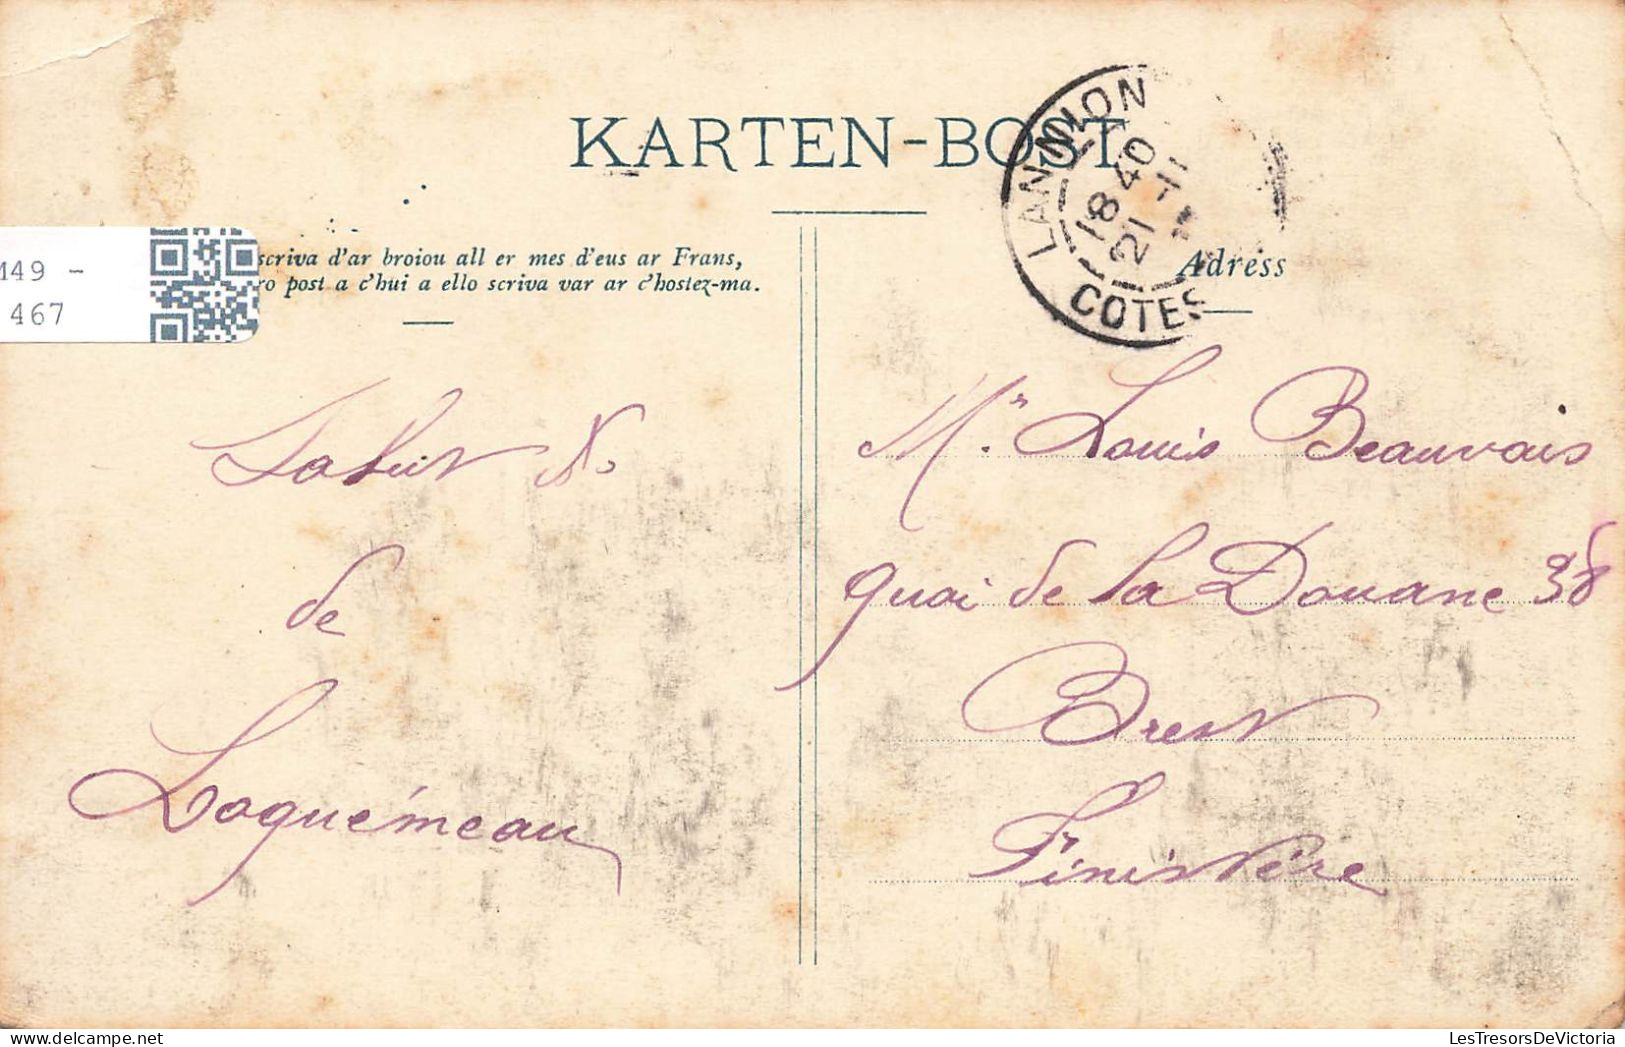 KARTEN-BOST
scriva d'ar broiou all er mes d'eus ar Frans,
ro post a c'hui a ello scriva var ar c'hostez-ma.
Adress
LANNION
18 40
21 -11
COTES
M49 -
467
Salut
de
Loquémeau
Mr. Louis Beauvais
quai de la Douane 38
Brest
Finistère
LesTresorsDeVictoria